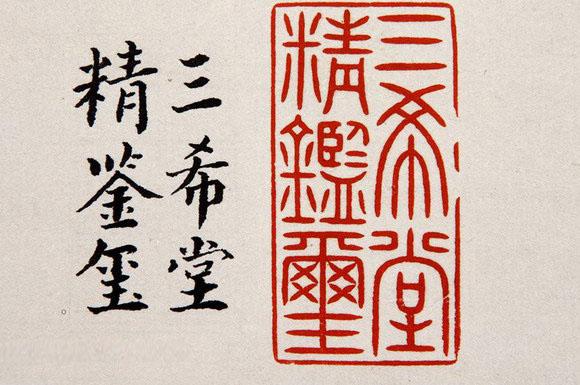 三希堂
精鑑璽
三希堂
精鉴玺